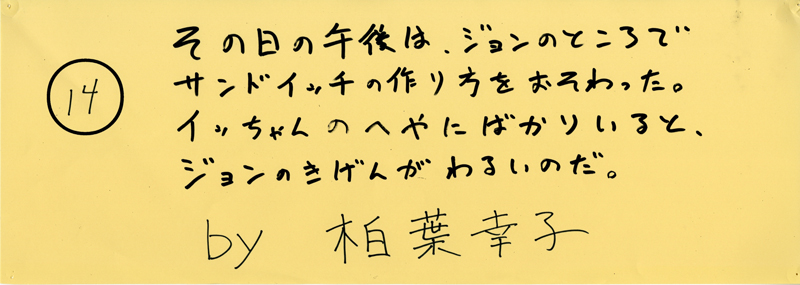 14
その日の午後は、ジョンのところで
サンドイッチの作り方をおそわった。
イッちゃんのへやにばかりいると、
ジョンのきげんがわるいのだ。
by 柏葉幸子